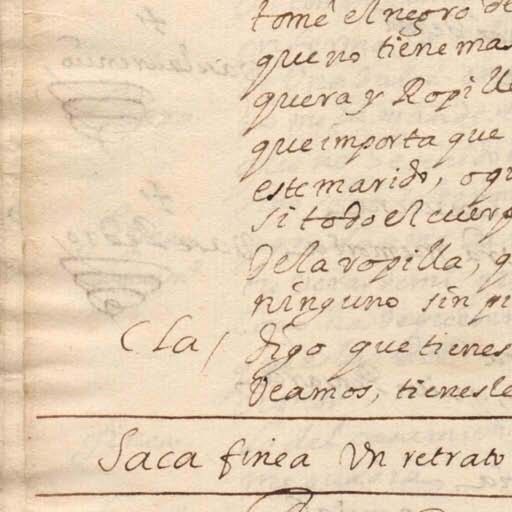 tome el negro de
que no tiene mas
quera y Ropille
que importa que
este marido, o qu
si todo el cuerp
de la ropilla, q
ninguno sin pi
Cla / digo que tienes
veamos, tienesle
Saca finea Vn retrato